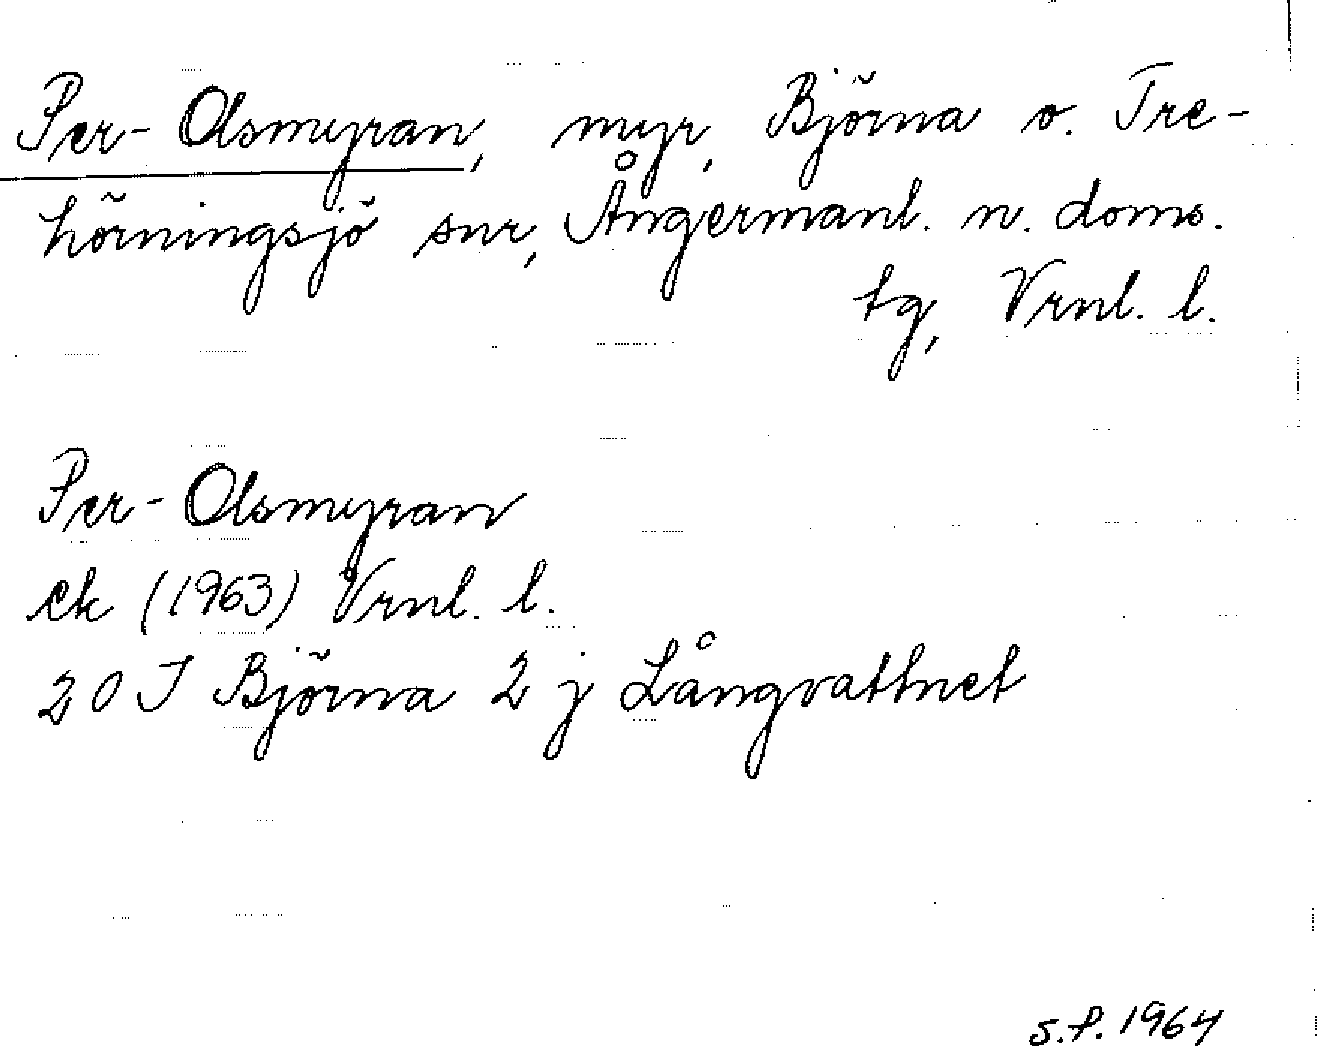 Per-Olsmyran, myr, Björna o. Tre-
hörningsjö snr, Ångermanl. n. doms.
tg, Vrnl. l.
Per-Olsmyran
ek (1963) Vrnl. l.
20 J Björna 2 j Långvattnet
S.P. 1964